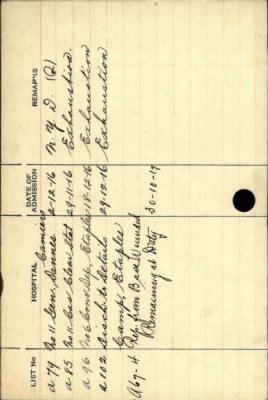 LIST No HOSPITAL DATE OF ADMISSION REMARKS
a 79 No 11 Gen. Dannes Camiers 2-12-16 N. Y. D. (2)
a 85 No 11 Cas Clear Stat 29-11-16 Exhaustion.
a 96 No 6 Conv. Dep. Etaples 18-12-16 Exhaustion
a 102 Disch. to Details 29-12-16 Exhaustion
Camp, Etaples
A67-4 Rep. from Base Wounded
Remaining at Duty 30-10-17